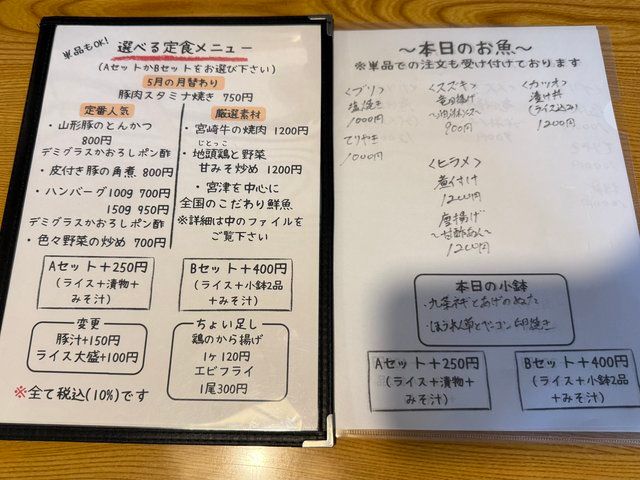 単品もOK!
選べる定食メニュー
(AセットかBセットをお選び下さい)
5月の月替わり
豚肉スタミナ焼き 750円
定番人気
・山形豚のとんかつ
800円
デミグラスかおろしポン酢
・皮付き豚の角煮 800円
・ハンバーグ 100g 700円
150g 950円
デミグラスかおろしポン酢
・色々野菜の炒め 700円
厳選素材
・宮崎牛の焼肉 1200円
じとっこ
・地頭鶏と野菜
甘みそ炒め 1200円
・宮津を中心に
全国のこだわり鮮魚
※詳細は中のファイルを
ご覧下さい
Aセット+250円
(ライス+漬物+
みそ汁)
Bセット+400円
(ライス+小鉢2品
+みそ汁)
変更
豚汁+150円
ライス大盛+100円
ちょい足し
鶏のから揚げ
1ヶ 120円
エビフライ
1尾 300円
※全て税込(10%)です
～本日のお魚～
※単品での注文も受け付けております
<ブリ>
塩焼き
1000円
てりやき
1000円
<スズキ>
竜田揚げ
900円
<カツオ>
漬け丼
(ライス込み)
1200円
<ヒラメ>
煮付け
1200円
唐揚げ
～甘酢あん～
1200円
本日の小鉢
・九条ネギとあげのぬた
・ほうれん草とベーコン卵焼き
Aセット+250円
(ライス+漬物+
みそ汁)
Bセット+400円
(ライス+小鉢2品
+みそ汁)